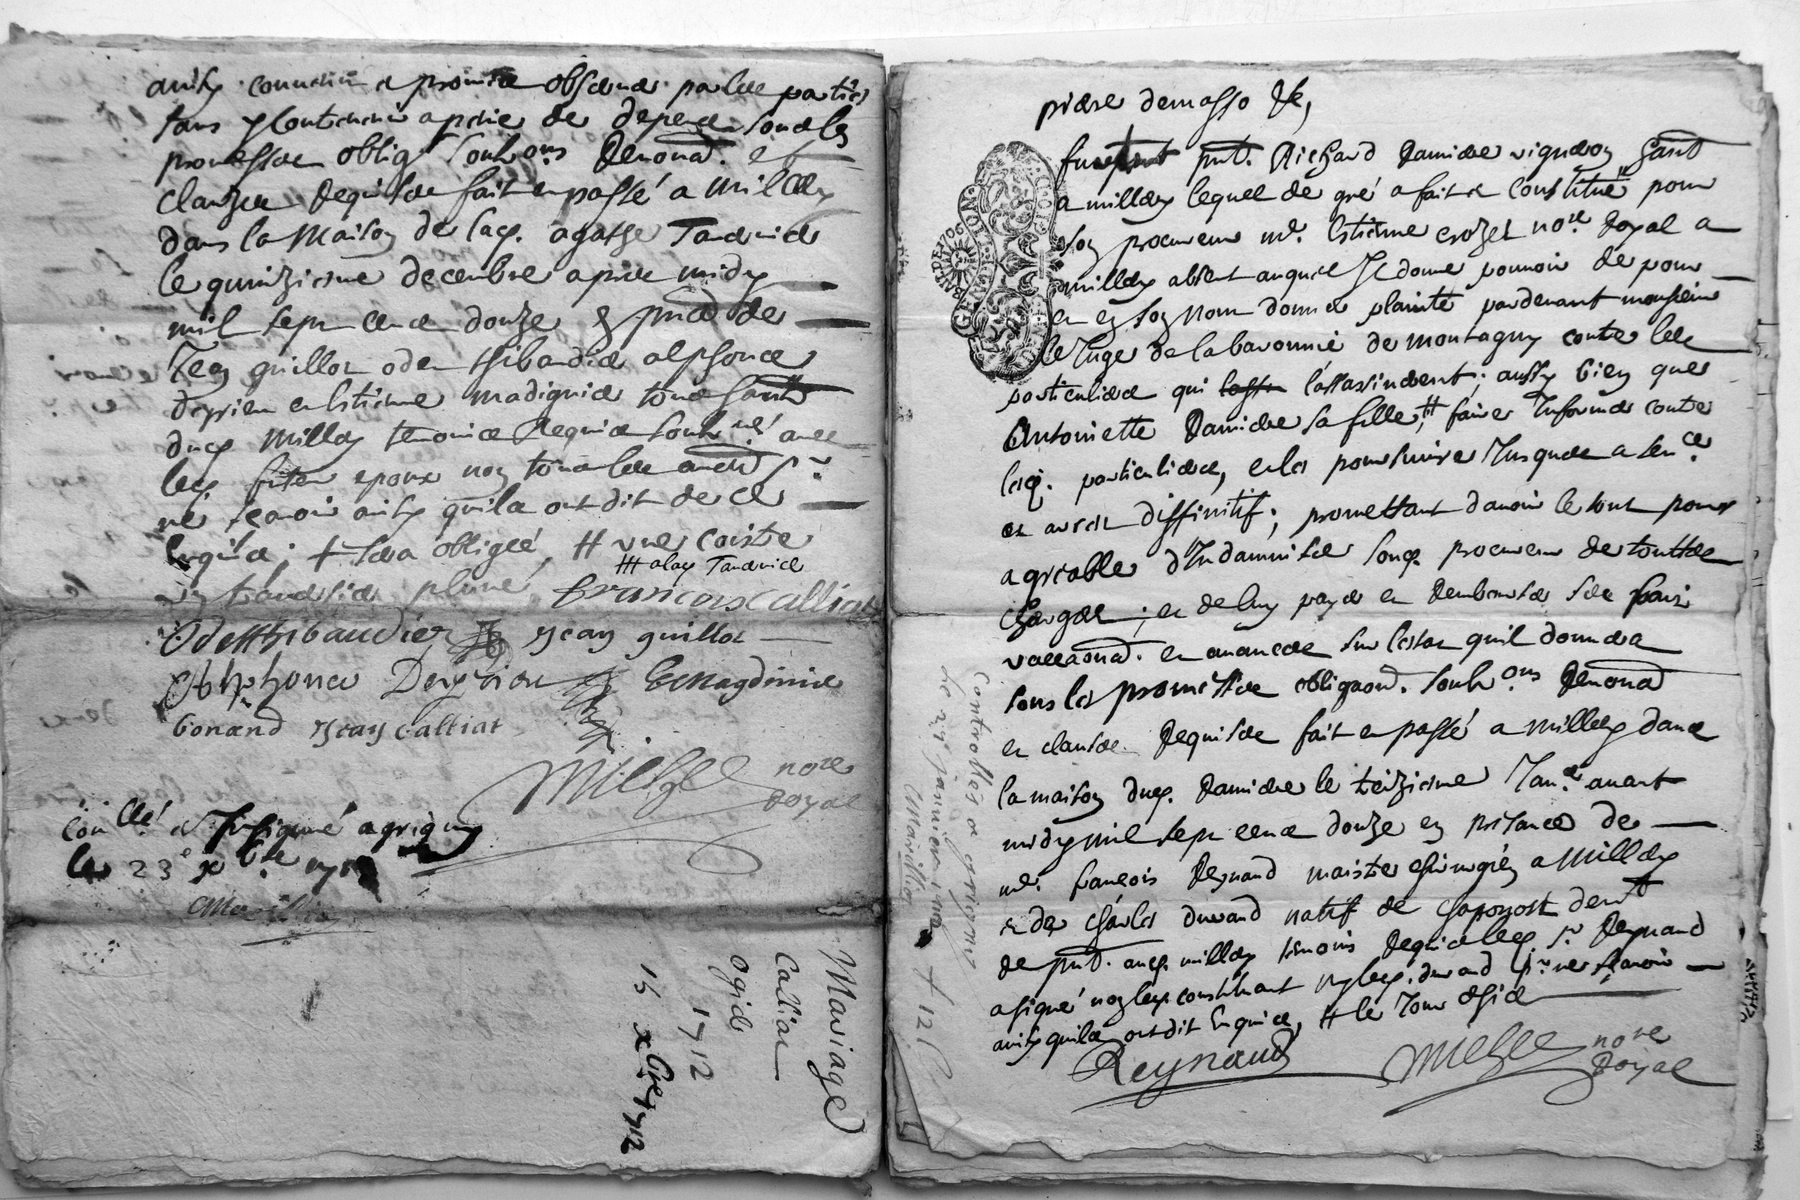 ainsy convenu et promis observer par les parties
sans y contrevenir a peine de despens sous les
promesses oblig. soub.ons Renond. et
clauses Requises fait en passé a Millery
dans la Maison de lad. agathe
le quinzieme decembre apres midy
mil sept cent douze en pnce de
Jean guillot odet thibaudier alphonce
deyrieu en Estienne madignier tous
dud. Millery temoins Requis soub.nes avec
lesd. futur epoux non
ne scavoir ainsy quils ont dit de ce
Enquis; + sera obligée, # une coistre
### a lad.
plume francois Calliat
Odet thibaudier Jean guillot
Alphonce Deyrieu E Magdinier
bonand Jean Calliat
nore
Royal
Con.llé et Insinué a grigny
le 23e xbre 1712
Mariage
Calliat
Ogier
1712
15 xbre 1712
piere demasso &c,
fut pnt. Richard Damiere vigneron hant
a millery lequel de gré a fait et constitué pour
son procureur me. Estienne crozet nore Royal a
millery absent auquel Il donne pouvoir de pour
et en son nom donner plainte pardevant monsieur
le Juge de la baronnie de montagny contre les
particuliers qui l'assassinerent; aussy bien que
Antoinette Damiere sa fille, # faire Informer contre
lesd. particuliers, et les poursuivre Jusques a sen.ce
et arrest diffinitif; promettant d'avoir le tout pour
agreable d'Indamniser sond. procureur de touttes
charges; et de luy payer et Rembourser ses frais
vaccaond. et avances sur l'estat quil donnera
sous les promesses obligaond. soub.ons Renond
et clauses Requises fait en passé a millery dans
la maison dud. Damiere le tèizieme Jan.er avant
midy mil sept cent douze en presance de
me. francois Reynaud maistre chirurgien a Millery
et de charles durand natif de chaponost demt
de pnt. aud. millery temoins Requis led. sr. Reynaud
a signé non led. constituant ny led. durand pr. ne scavoir
ainsy quils ont dit Enquis, # le Jour d'hier
Reynaud nore
Royal
Controllés a grigny
le 25 janvier 1712
+ 12 s